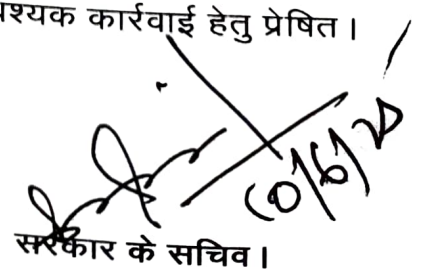 श्यक कार्रवाई हेतु प्रेषित।
सरकार के सचिव।